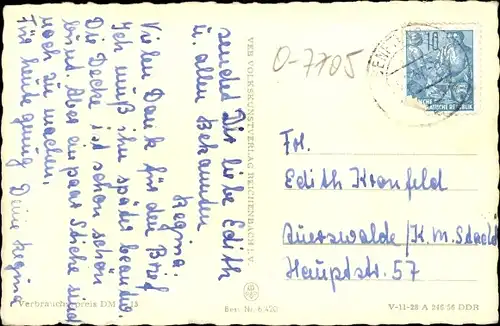 sendet Dir liebe Edith
u. allen Bekannten
Regina
Vielen Dank für den Brief
Ich muß ihn später beantw.
Die Decke ist schon schön
bunt. Aber ein paar Stiche sind
noch zu machen.
Für heute genug Deine Regina
Verbraucherpreis DM
VEB VOLKSKUNSTVERLAG REICHENBACH I. V.
Best. Nr. 6/420
O-7705
10
DEUTSCHE
DEMOKRATISCHE REPUBLIK
Frl.
Edith Kronfeld
Auerswalde/K.M.Stadt
Hauptstr. 57
V-11-28 A 246/56 DDR